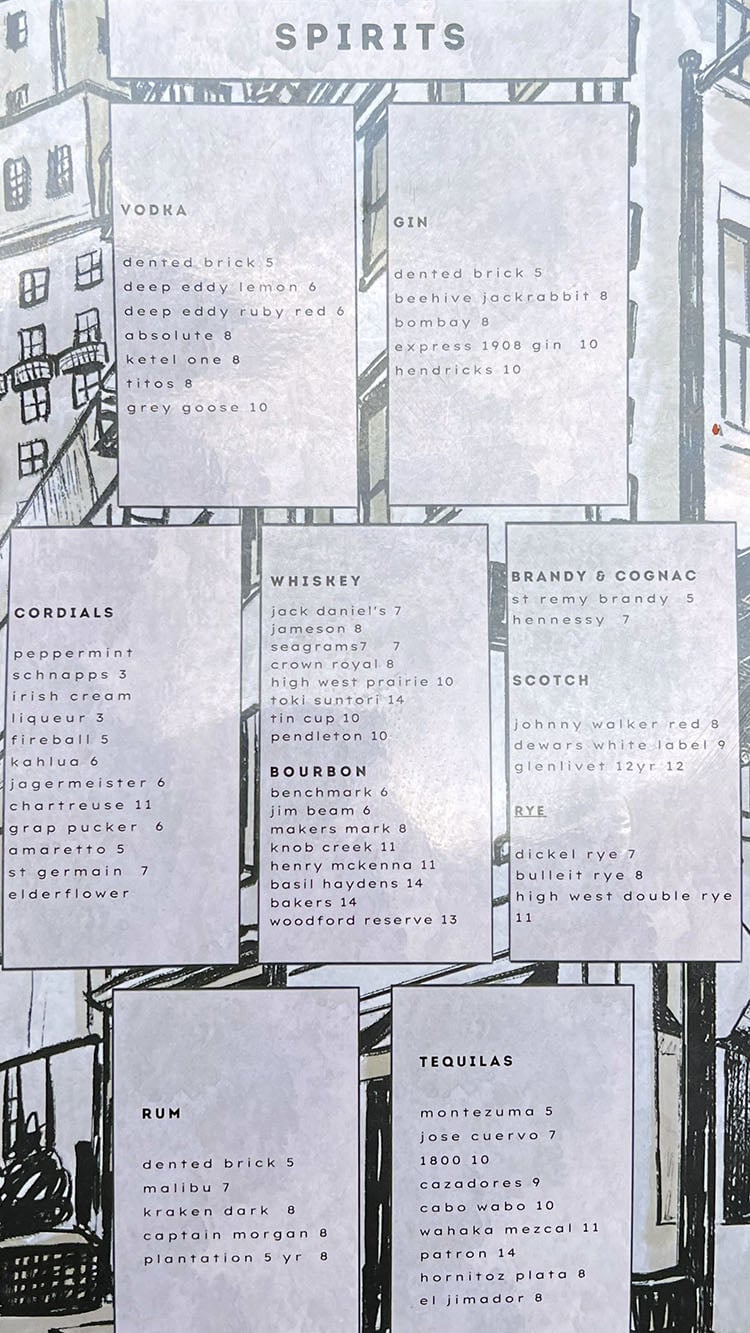 SPIRITS
VODKA
dented brick 5
deep eddy lemon 6
deep eddy ruby red 6
absolute 8
ketel one 8
titos 8
grey goose 10
GIN
dented brick 5
beehive jackrabbit 8
bombay 8
express 1908 gin 10
hendricks 10
CORDIALS
peppermint
schnapps 3
irish cream
liqueur 3
fireball 5
kahlua 6
jagermeister 6
chartreuse 11
grap pucker 6
amaretto 5
st germain 7
elderflower
WHISKEY
jack daniel's 7
jameson 8
seagrams7 7
crown royal 8
high west prairie 10
toki suntori 14
tin cup 10
pendleton 10
BOURBON
benchmark 6
jim beam 6
makers mark 8
knob creek 11
henry mckenna 11
basil haydens 14
bakers 14
woodford reserve 13
BRANDY & COGNAC
st remy brandy 5
hennessy 7
SCOTCH
johnny walker red 8
dewars white label 9
glenlivet 12yr 12
RYE
dickel rye 7
bulleit rye 8
high west double rye
11
RUM
dented brick 5
malibu 7
kraken dark 8
captain morgan 8
plantation 5 yr 8
TEQUILAS
montezuma 5
jose cuervo 7
1800 10
cazadores 9
cabo wabo 10
wahaka mezcal 11
patron 14
hornitoz plata 8
el jimador 8